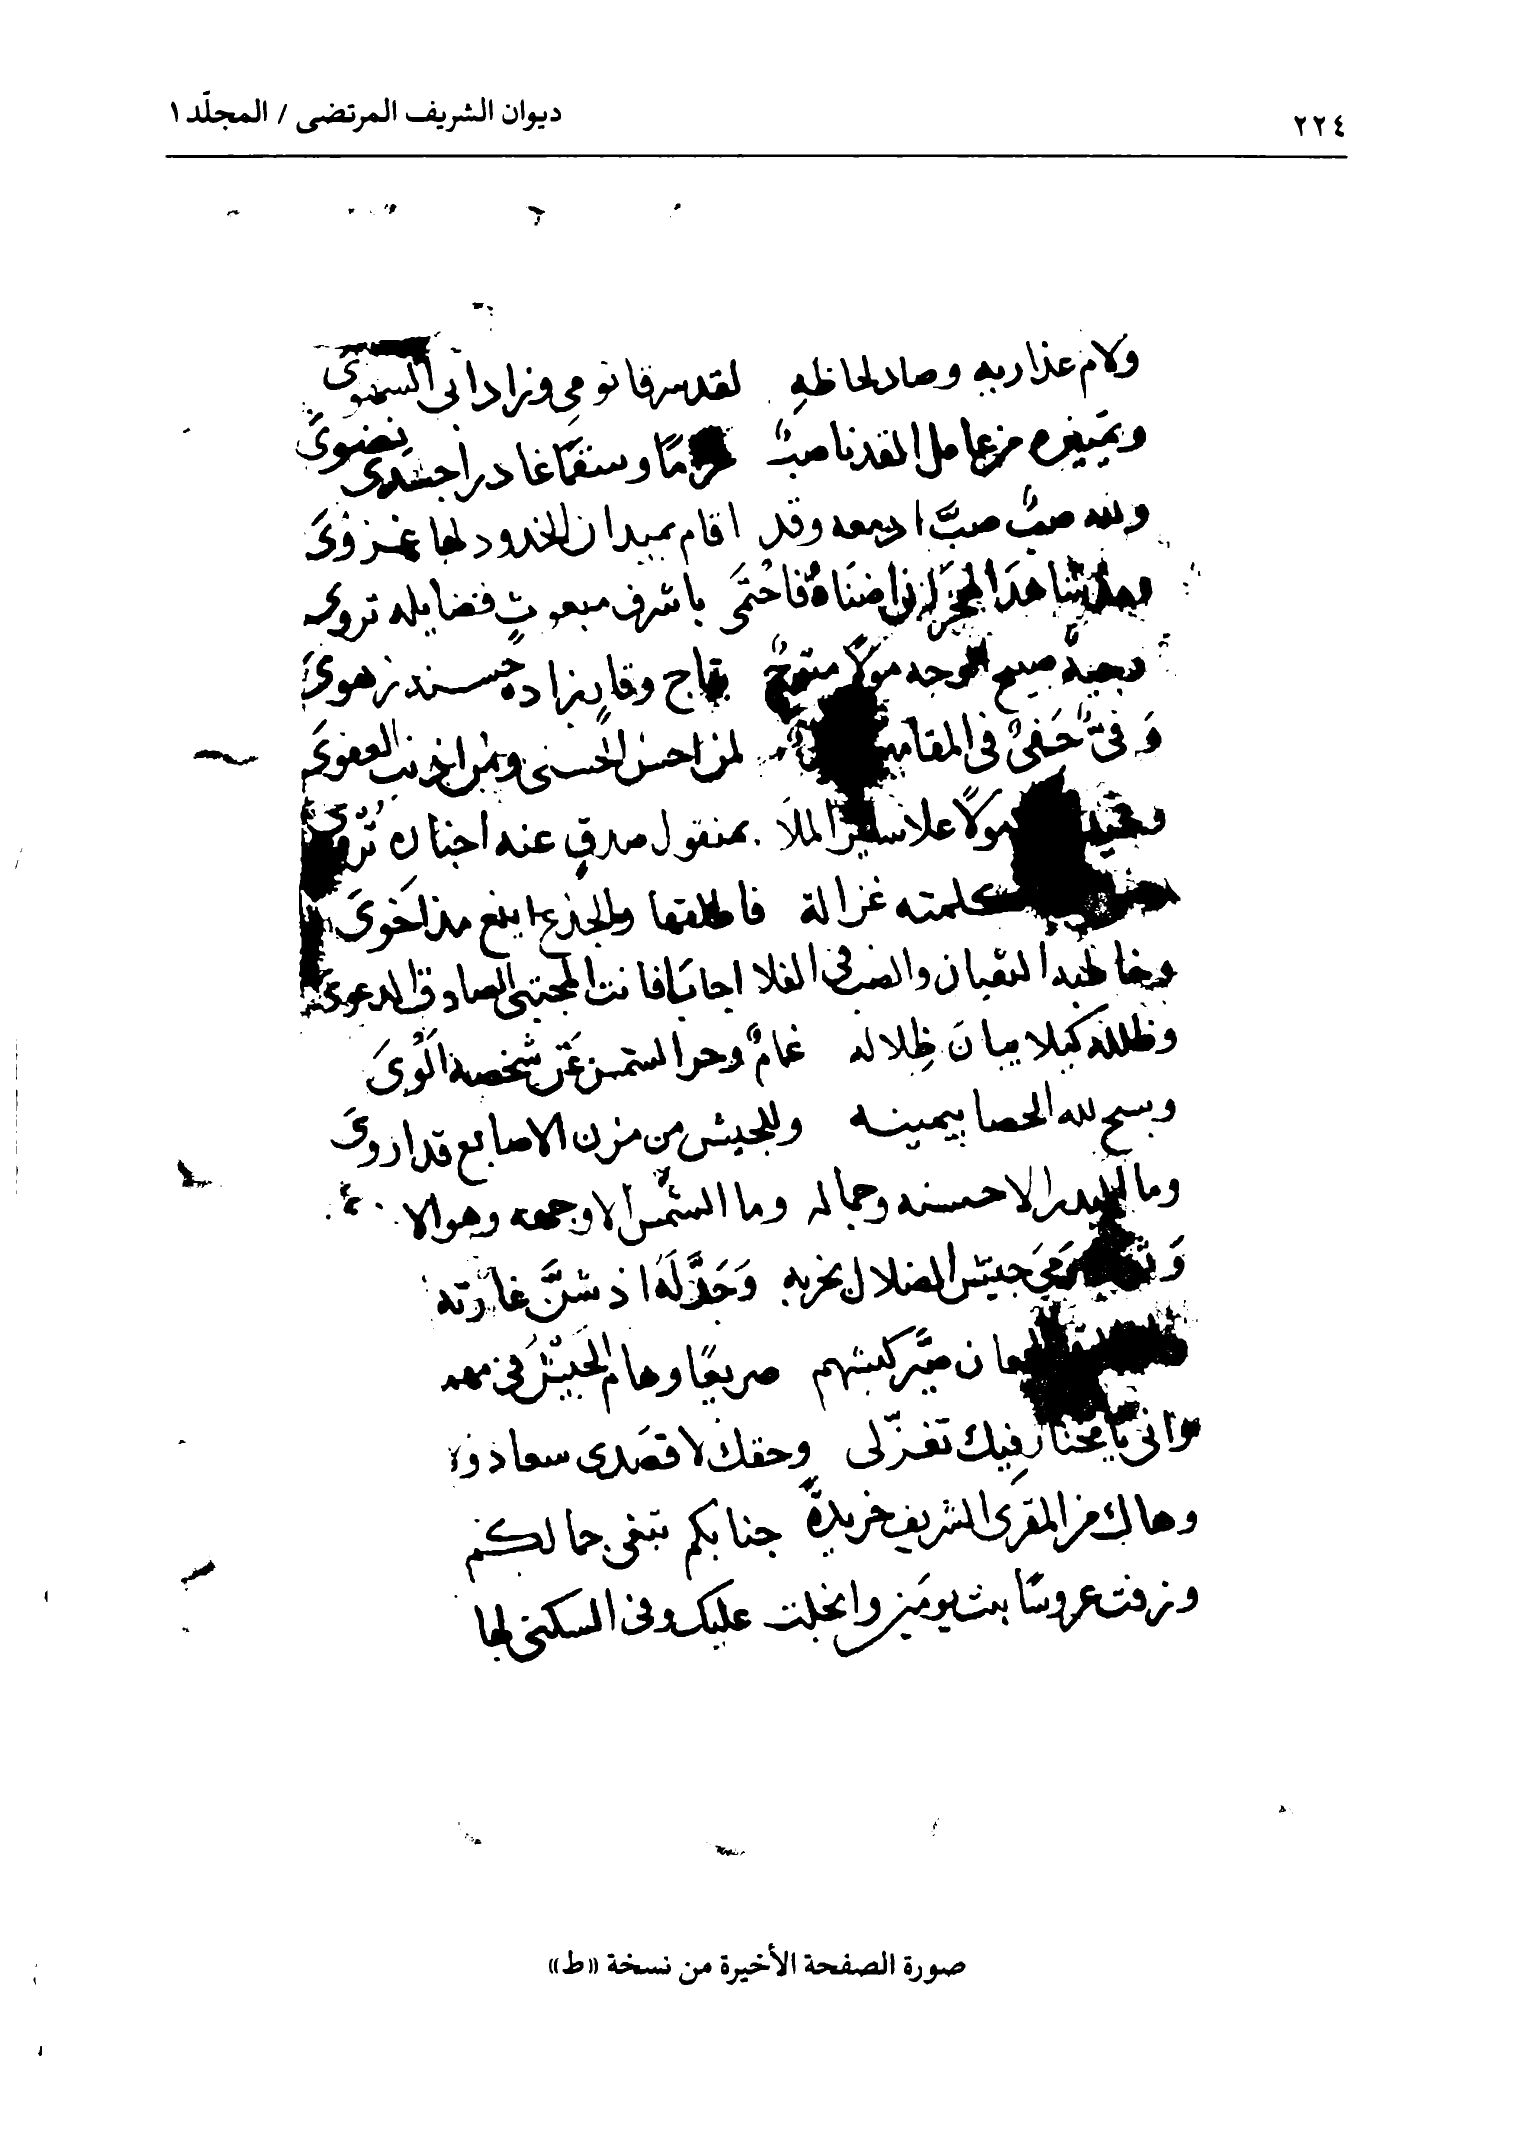 ٢٢٤
ديوان الشريف المرتضى / المجلّد ١
ولام عذاريه وصاد لحاظهِ لقد سرقا نومي وزادا بى السهوى
عامل القد ناصبٌ وسقمًا غادرا جسَدى نضوىَ
ولله صبٌ صبَّ ادمعه وقد اقام بميدان الخدود لها غزوىَ
شاهدَ اضنَاهُ فاحْتمَى باشرف مبعوثٍ فضايله تروى
صبيح الوجه مولاً متوجٌ بتاج وقارٍ زاده حسنه زهوىَ
وَفىٌّ حَفىٌ فى لمن احسن الحسنى ومن اذنب العفوىَ
مولاً علا ساير الملاَ بمنقول صدقٍ عنه اخباره تُروىَ
كلمته غزالة فاطلقها والجذع اينع مذ اخوىَ
وخاطبه الثعبان والضب فى الفلا اجابا فانت المجتبى الصادق الدعوى
وظلله كيلا يبانَ ظِلاله غمامٌ وحر الشمس عَن شخصه الْوىَ
وسبح لله الحصا بيمينه وللجيش من مزن الاصابع قد اروىَ
وما البدر الا حسنه وجماله وما الشمس الا وجهه وهو الا
رَمىَ جيش الضلال بحزبه وَجَدَّلَهُ اذ شنَّ غارته
صيَّر كبشهم صريعًا وهام الجيْش فى مهمه
وانى يا مختار فيك تغزّلى وحقك لا قصَدى سعاد ولا
وهاك من المقرى الشريف خريدةً جنابكم تبغى جمالكم
وزفت عروسًا بنت يومَين وانجلت عليك وفى السكنى لها
صورة الصفحة الأخيرة من نسخة «ط»